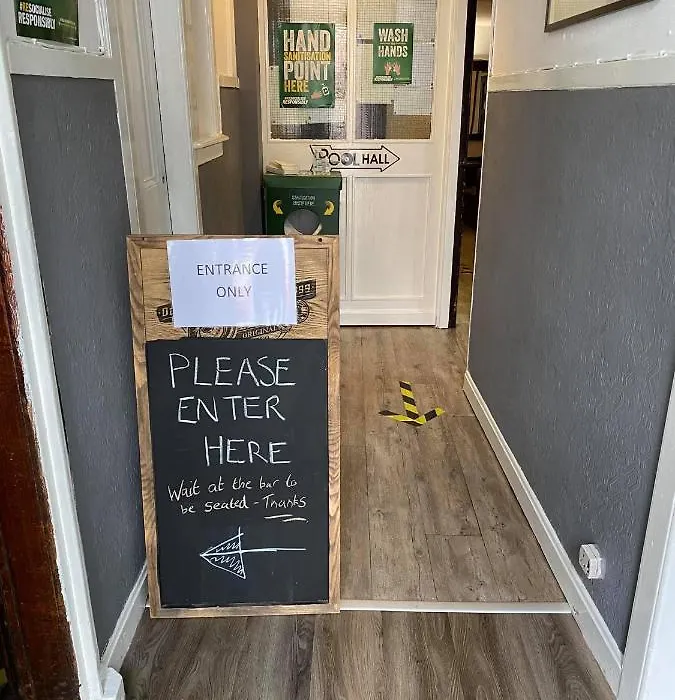 RESOCIALISE
RESPONSIBLY
HAND
SANITISATION
POINT
HERE
RESPONSIBLY
WASH
HANDS
POOL HALL
ENTRANCE
ONLY
ORIGINAL
PLEASE
ENTER
HERE
Wait at the bar to
be seated - Thanks